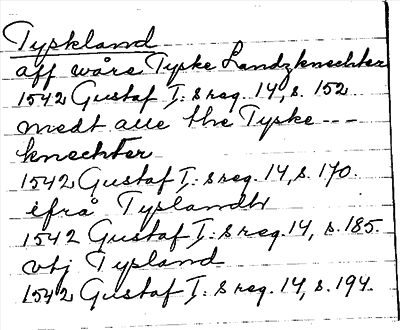 Tyskland
aff wåre Tyske Landzknechter
1542 Gustaf I:s reg. 14, s. 152
medt alle the Tyske ---
knechter
1542 Gustaf I:s reg. 14, s. 170.
ifrå Tyslandh
1542 Gustaf I:s reg. 14, s. 185.
vtj Tysland
1542 Gustaf I:s reg. 14, s. 194.